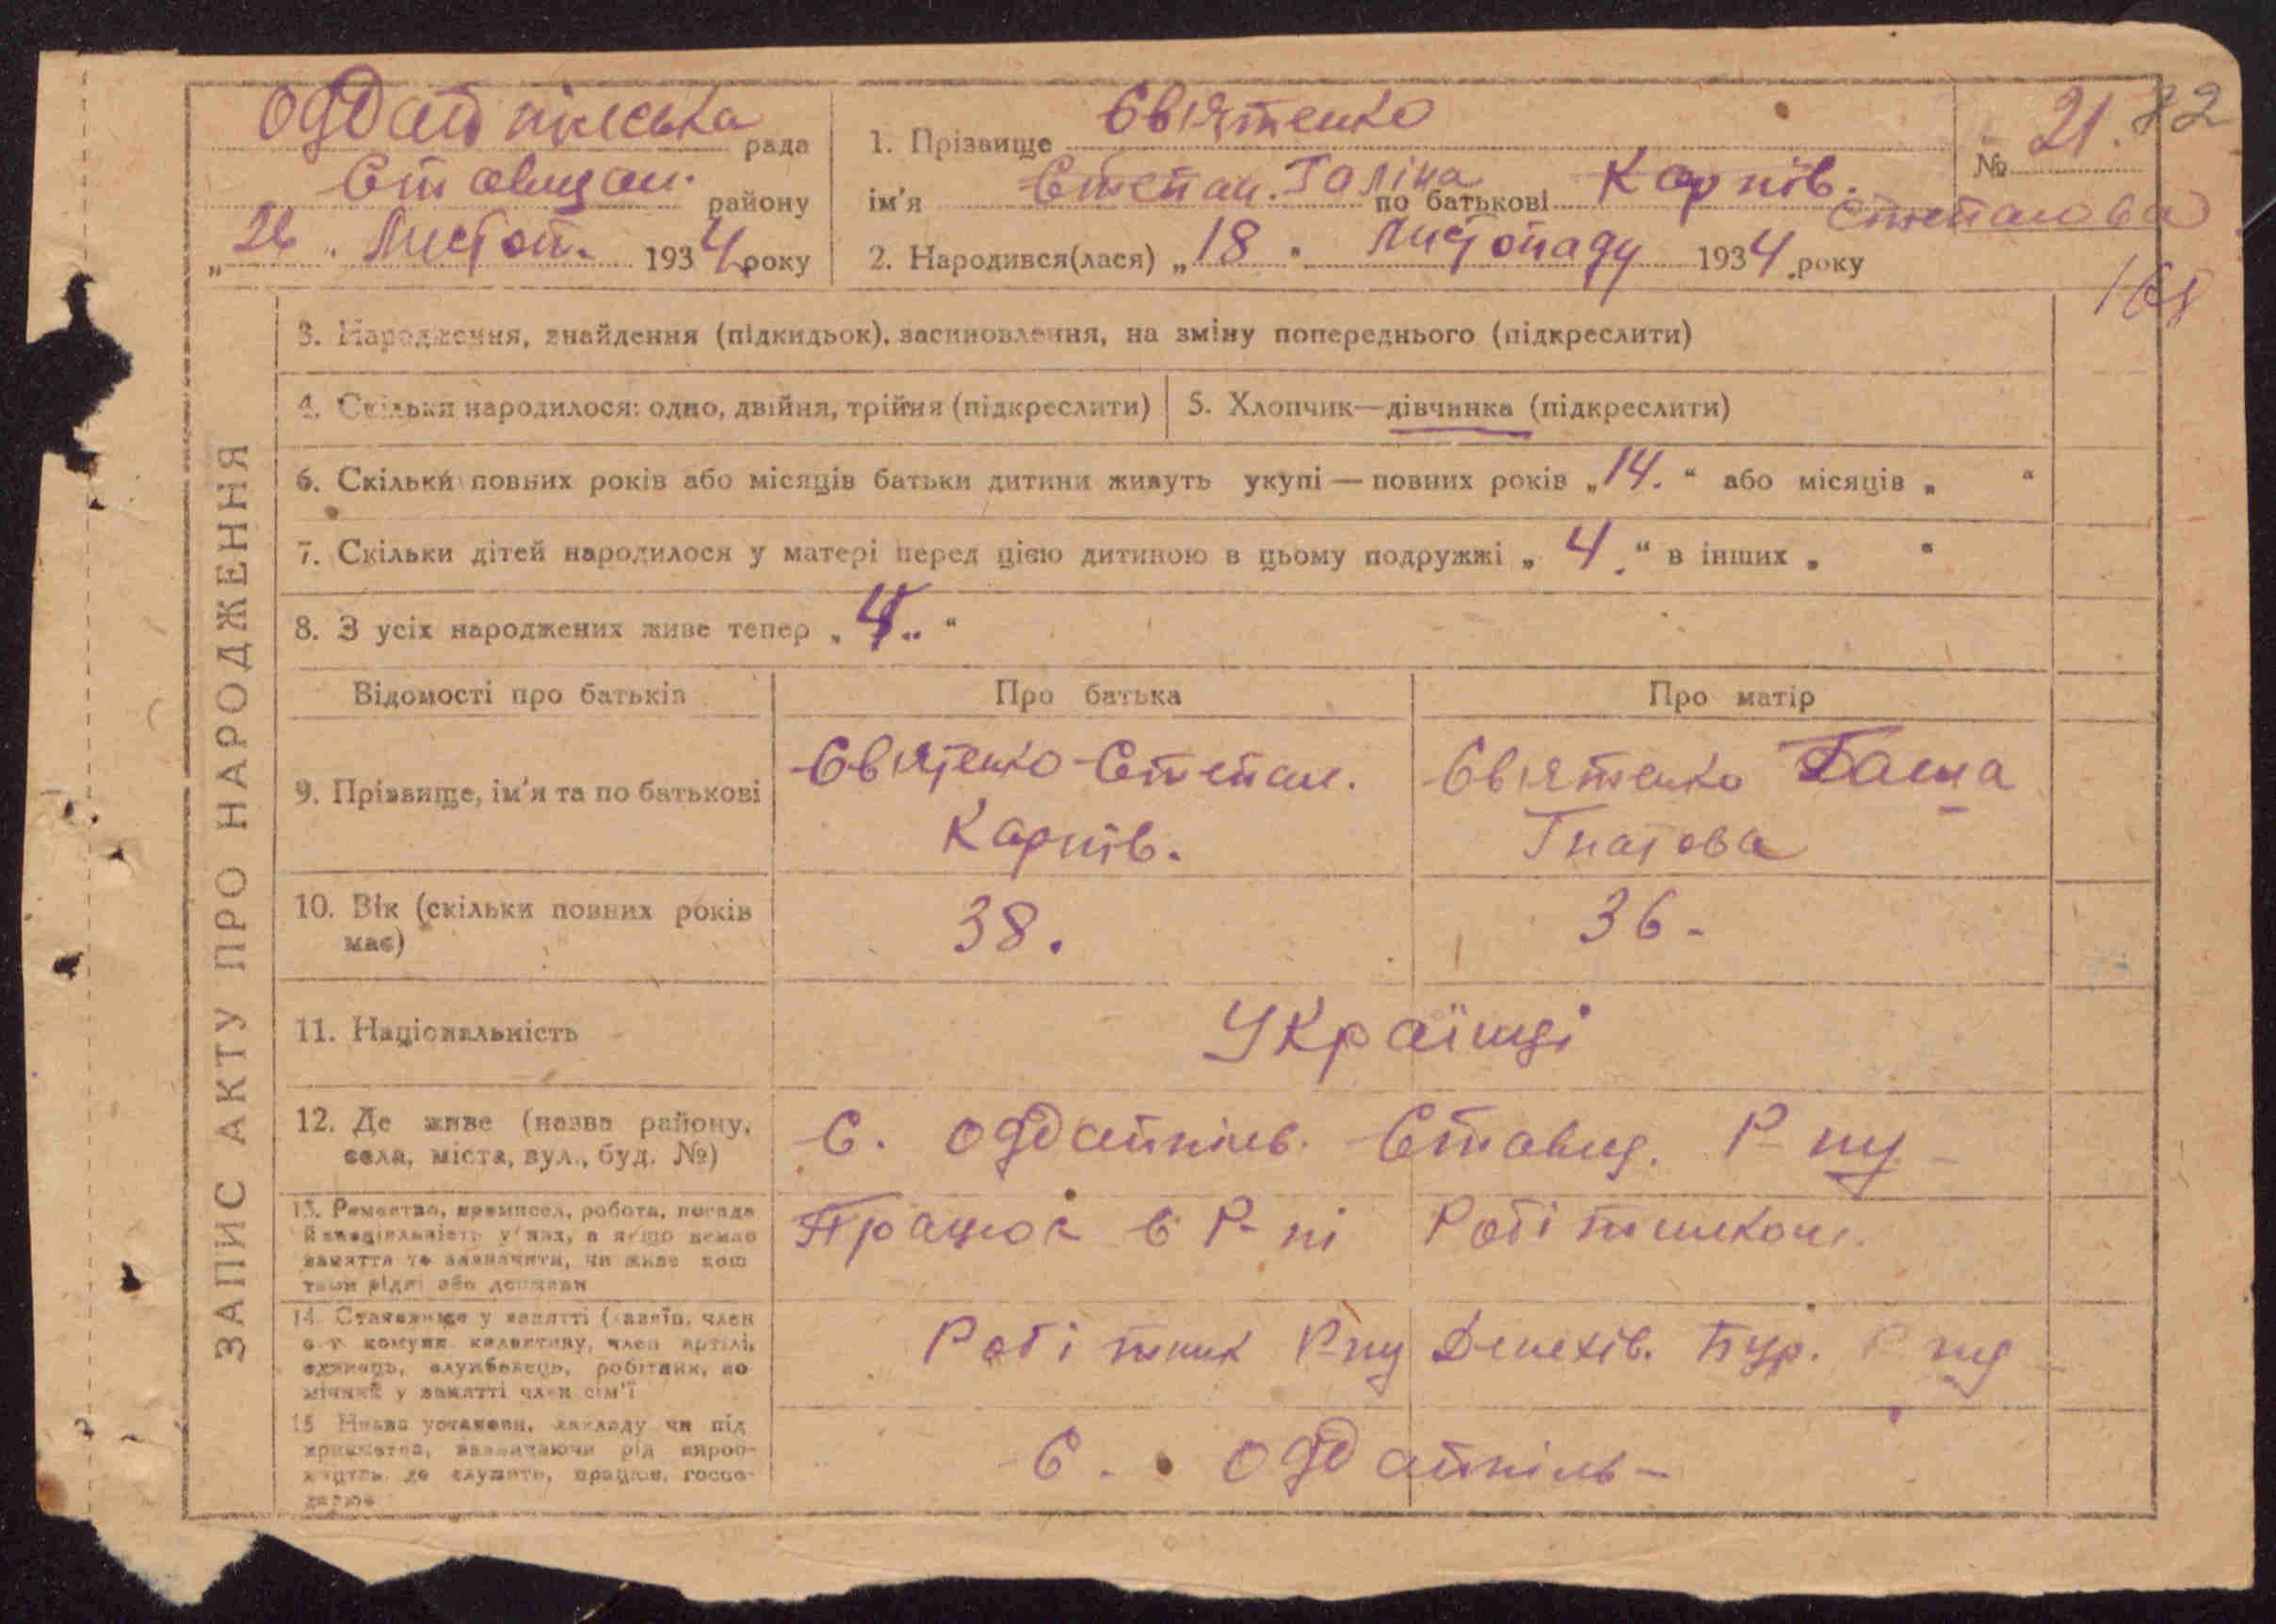 Оддайпільська рада
Ставищан. району
„26. Листоп. 1934 року
1. Прізвище Святенко
ім'я Степан. Галіна по батькові Карпів. Степанова
2. Народився(лася) „18" Листопаду 1934 року
№ 21. 82
168
ЗАПИС АКТУ ПРО НАРОДЖЕННЯ
3. Народження, знайдення (підкидьок), засиновлення, на зміну попереднього (підкреслити)
4. Скільки народилося: одно, двійня, трійня (підкреслити)
5. Хлопчик—дівчинка (підкреслити)
6. Скільки повних років або місяців батьки дитини живуть укупі — повних років „14." або місяців „ "
7. Скільки дітей народилося у матері перед цією дитиною в цьому подружжі „ 4. " в інших „ "
8. З усіх народжених живе тепер „ 4.. "
Відомості про батьків
Про батька
Про матір
9. Прізвище, ім'я та по батькові
Святенко Степан.
Карпів.
Святенко
Гнатова
10. Вік (скільки повних років
має)
38.
36-
11. Національність
Українці
12. Де живе (назва району,
села, міста, вул., буд. №)
С. Оддайпіль. Ставищ. Р-ну
13. Ремество, промисел, робота, посада
й спеціальність у них, а якщо немає
заняття то зазначити, чи живе кош
тами рідні або держави
Працює в Р-ні Робітником.
14. Становище у занятті (хазяїн, член
с.-г. комуни колективу, член артілі,
одинець, службовець, робітник, по
мічний у занятті член сім'ї
Робітник Р-ну Бур. Р-ну
15 Назва установи, закладу чи під
приємства, зазначаючи рід вироб-
ництва де служить, працює, госпо-
дарює
С. Оддайпіль-